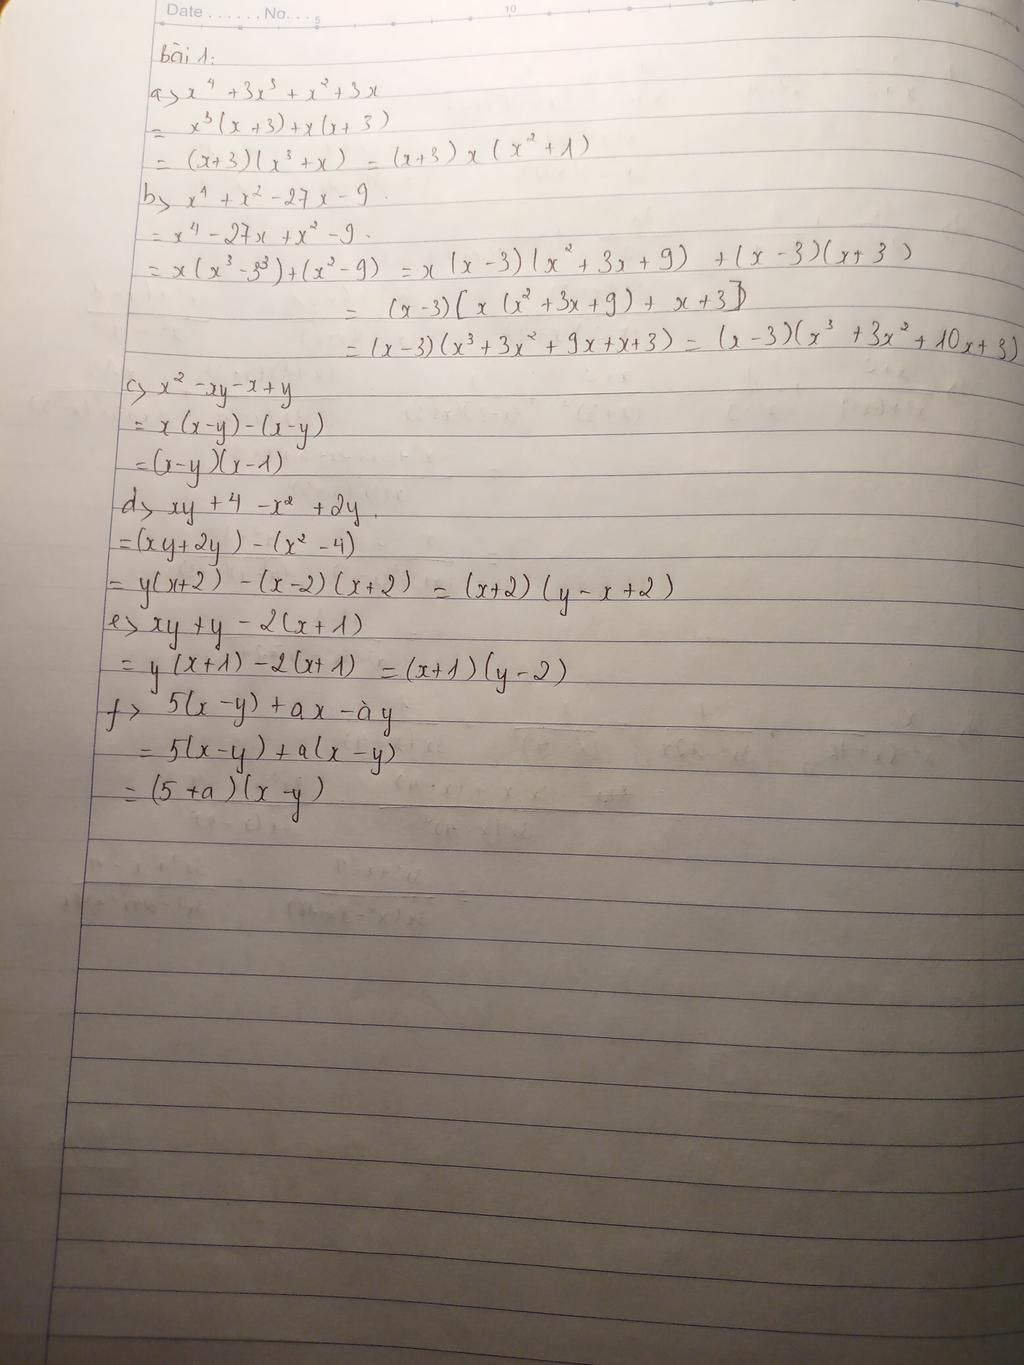 Date ...... No...
5
10
bài 1:
a> x⁴ + 3x³ + x² + 3x
= x³(x + 3) + x(x + 3)
= (x+3)(x³ + x) = (x+3) x (x² + 1)
b> x⁴ + x² - 27x - 9.
= x⁴ - 27x + x² - 9.
= x(x³ - 3³) + (x² - 9) = x (x - 3)(x² + 3x + 9) + (x - 3)(x + 3)
= (x - 3)[x (x² + 3x + 9) + x + 3]
= (x - 3)(x³ + 3x² + 9x + x + 3) = (x - 3)(x³ + 3x² + 10x + 3)
c> x² - xy - x + y
= x (x - y) - (x - y)
= (x - y)(x - 1)
d> xy + 4 - x² + 2y.
= (xy + 2y) - (x² - 4)
= y(x+2) - (x - 2)(x + 2) = (x+2)(y - x + 2)
e> xy + y - 2(x + 1)
= y (x+1) - 2(x+1) = (x+1)(y - 2)
f> 5(x - y) + ax - ày
= 5(x - y) + a(x - y)
= (5 + a)(x - y)